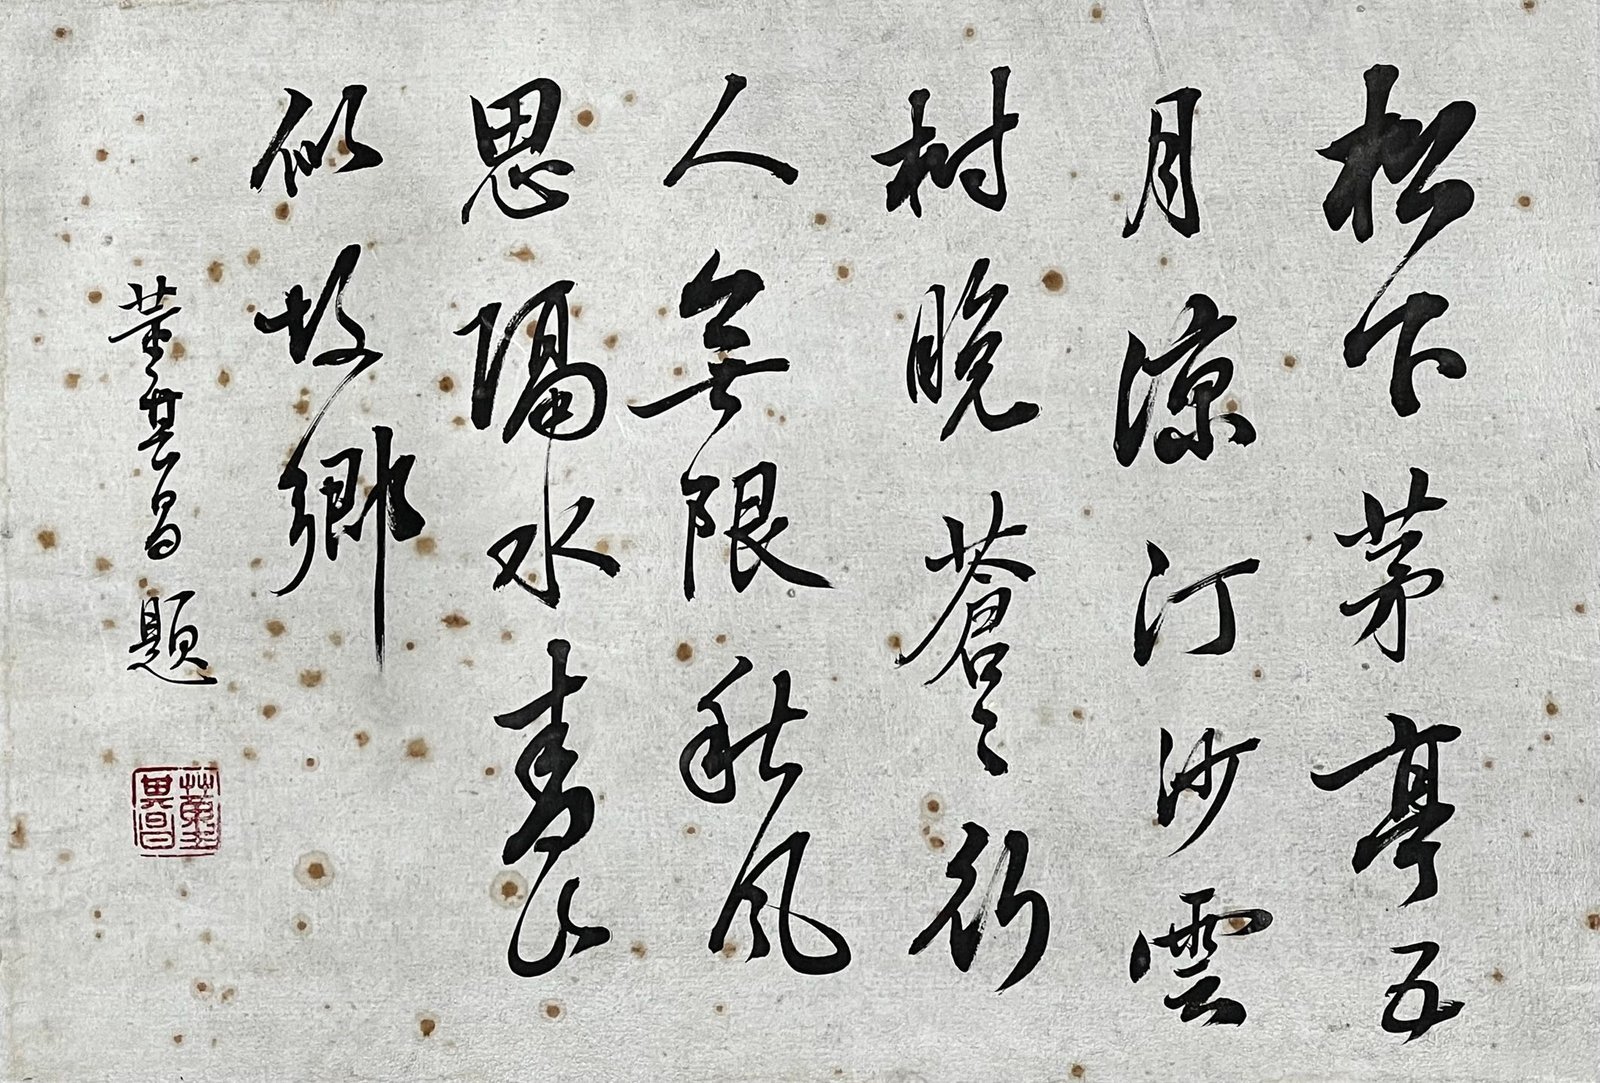 松下茅亭五
月涼汀沙雲
樹晚蒼々行
人無限秋風
思隔水青山
似故鄉
董其昌題
董其昌